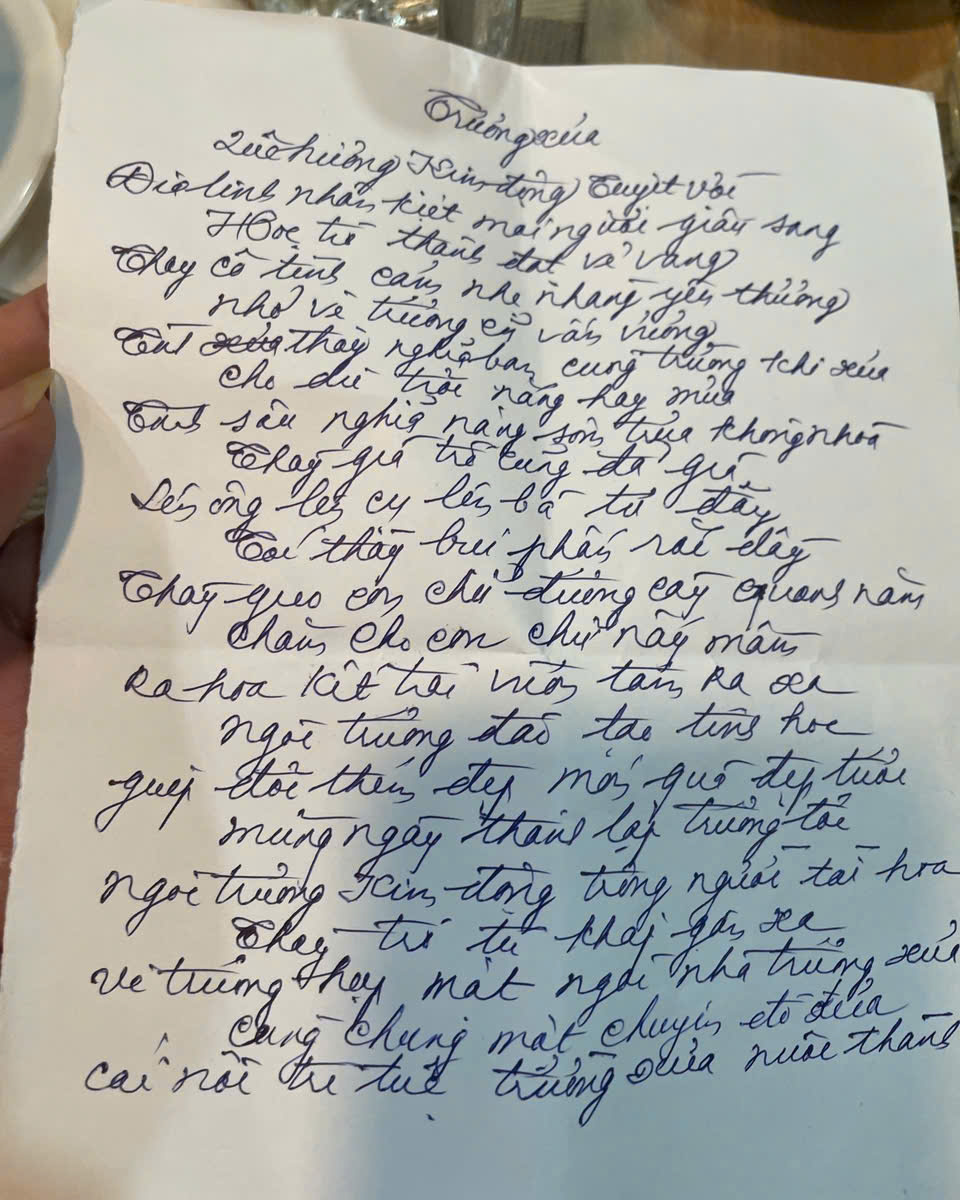 Trường xưa
Quê hương Kim động tuyệt vời
Địa linh nhân kiệt mọi người giầu sang
Học trò thành đạt vẻ vang
Thầy cô tình cảm nhẹ nhàng yêu thương
nhớ về trường cũ vấn vương
Tình thầy nghĩa bạn cùng trường khi xưa
cho dù trời nắng hay mưa
Tình sâu nghĩa nặng sớm trưa không nhoà
Thầy già trò cũng đã già
Lên ông lên cụ lên bà từ đây
Tóc thầy bụi phấn rơi đầy
Thầy gieo con chữ đường cày quanh năm
chăm cho con chữ nảy mầm
Ra hoa kết trái vươn tầm Ra xa
ngôi trường đào tạo tinh hoa
giúp đời thêm đẹp món quà đẹp tươi
mừng ngày thành lập trường tôi
ngôi trường Kim động trồng người tài hoa
Thầy trò từ khắp gần xa
về trường họp mặt ngôi nhà trường xưa
cùng chung một chuyến đò đưa
cái nôi trí tuệ trường xưa nuôi thành